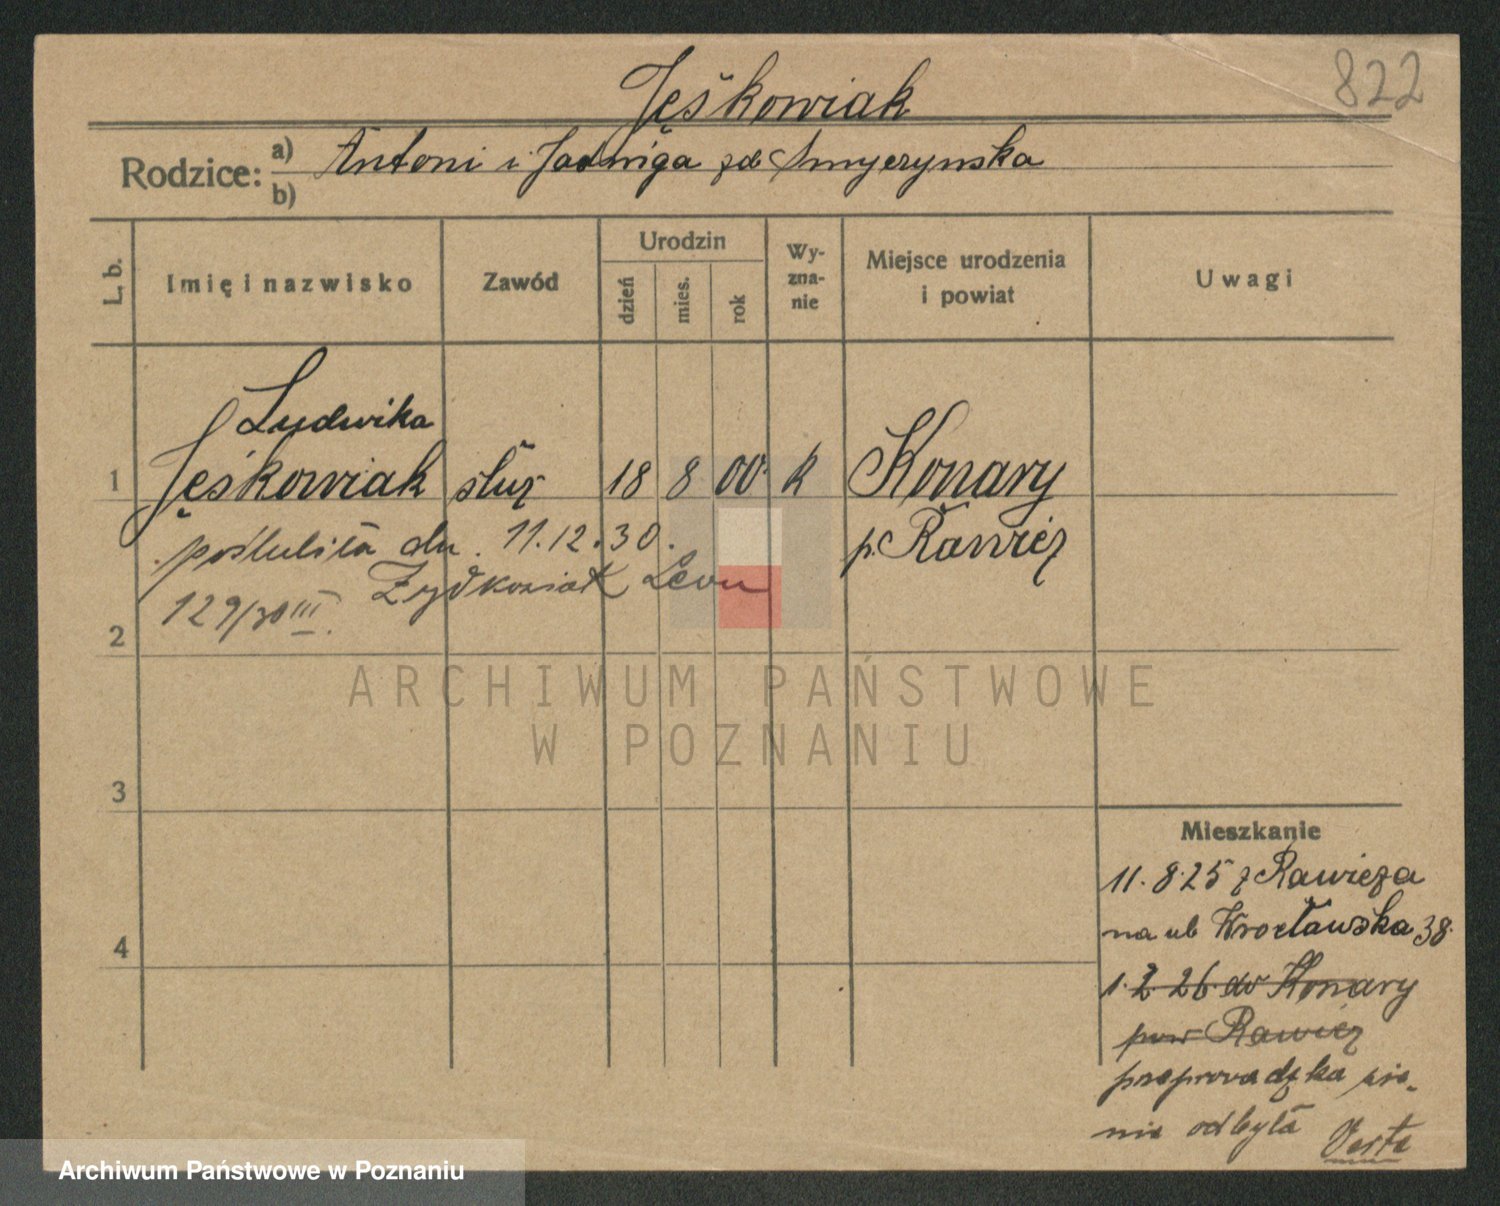 822
Jęśkowiak
Rodzice: a) Antoni i Jadwiga zd Smyczynska
b)
L. b.
Imię i nazwisko
Zawód
Urodzin
dzień
mies.
rok
Wy-
zna-
nie
Miejsce urodzenia
i powiat
Uwagi
Ludwika
1 Jęśkowiak służ 18 8 00. k Konary
p. Rawicz
poślubiła dn. 11.12.30.
Leon
129/30 III.
2
ARCHIWUM PAŃSTWOWE
W POZNANIU
3
4
Mieszkanie
11.8.25 z Rawicza
na ul Wrocławska 38.
1.2.26 do Konary
pow Rawicz
przeprowadzka się
nie odbyła
Verte
Archiwum Państwowe w Poznaniu